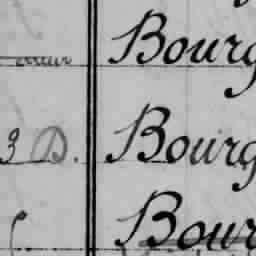 Bourg
3 D. Bourg
Bour